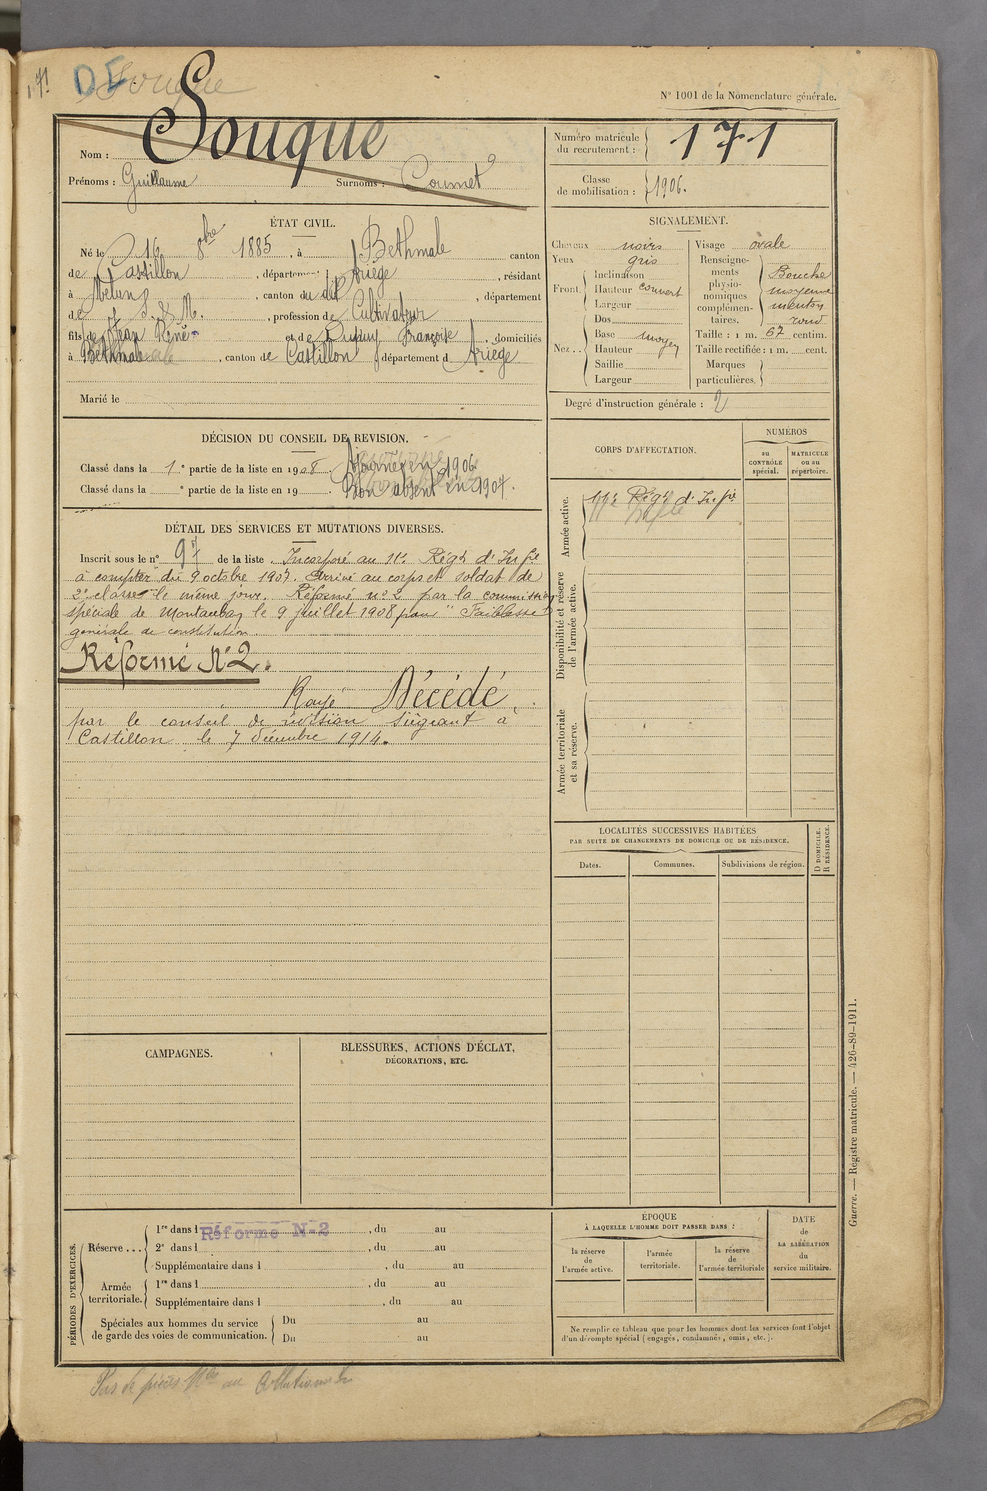 171
DE
Souque
N° 1001 de la Nomenclature générale.
Nom : Souque
Prénoms : Guillaume Surnoms : Coumet
Numéro matricule du recrutement : 171
Classe de mobilisation : 1906.
ÉTAT CIVIL.
Né le 16 8bre 1885, à Bethmale canton
de Castillon, département Ariège, résidant
à Melun, canton du dit, département
de S. & M., profession de Cultivateur
fils de Jean René et de Françoise, domiciliés
à Bethmale, canton de Castillon département d Ariège
Marié le
SIGNALEMENT.
Cheveux noirs
Yeux gris
Front. Inclinaison
Hauteur couvert
Largeur
Nez.. Dos
Base moyen
Hauteur
Saillie
Largeur
Visage ovale
Renseignements physionomiques complémentaires. Bouche moyenne menton rond
Taille : 1 m. 67 centim.
Taille rectifiée : 1 m. cent.
Marques particulières.
Degré d'instruction générale : 2
DÉCISION DU CONSEIL DE REVISION.
Classé dans la 1e partie de la liste en 1908. Ajourné en 1906
Classé dans la e partie de la liste en 19 . Bon absent en 1907.
DÉTAIL DES SERVICES ET MUTATIONS DIVERSES.
Inscrit sous le n° 97 de la liste. Incorporé au 11e Régt d'Infie
à compter du 9 octobre 1907. Arrivé au corps et soldat de
2e classe le même jour. Réformé n° 2 par la commission
spéciale de Montauban le 9 juillet 1908 pour "Faiblesse
générale de constitution.
Réformé N° 2.
Rayé Décédé,
par le conseil de révision siégeant à
Castillon le 7 décembre 1914.
CORPS D'AFFECTATION.
NUMÉROS
au CONTRÔLE spécial.
MATRICULE ou au répertoire.
Armée active.
11e Régt d'Infie
Disponibilité et réserve de l'armée active.
Armée territoriale et sa réserve.
LOCALITÉS SUCCESSIVES HABITÉES
PAR SUITE DE CHANGEMENTS DE DOMICILE OU DE RÉSIDENCE.
Dates.
Communes.
Subdivisions de région.
D DOMICILE.
R RÉSIDENCE.
CAMPAGNES.
BLESSURES, ACTIONS D'ÉCLAT,
DÉCORATIONS, ETC.
PÉRIODES D'EXERCICES.
Réserve...
1re dans l , du au
Réformé N-2
2e dans l , du au
Supplémentaire dans l , du au
Armée territoriale.
1re dans l , du au
Supplémentaire dans l , du au
Spéciales aux hommes du service de garde des voies de communication.
Du au
Du au
ÉPOQUE
À LAQUELLE L'HOMME DOIT PASSER DANS :
la réserve de l'armée active.
l'armée territoriale.
la réserve de l'armée territoriale
DATE de LA LIBÉRATION du service militaire.
Ne remplir ce tableau que pour les hommes dont les services font l'objet
d'un décompte spécial (engagés, condamnés, omis, etc.).
Guerre. — Registre matricule. — 426-89-1911.
Pas de pièces